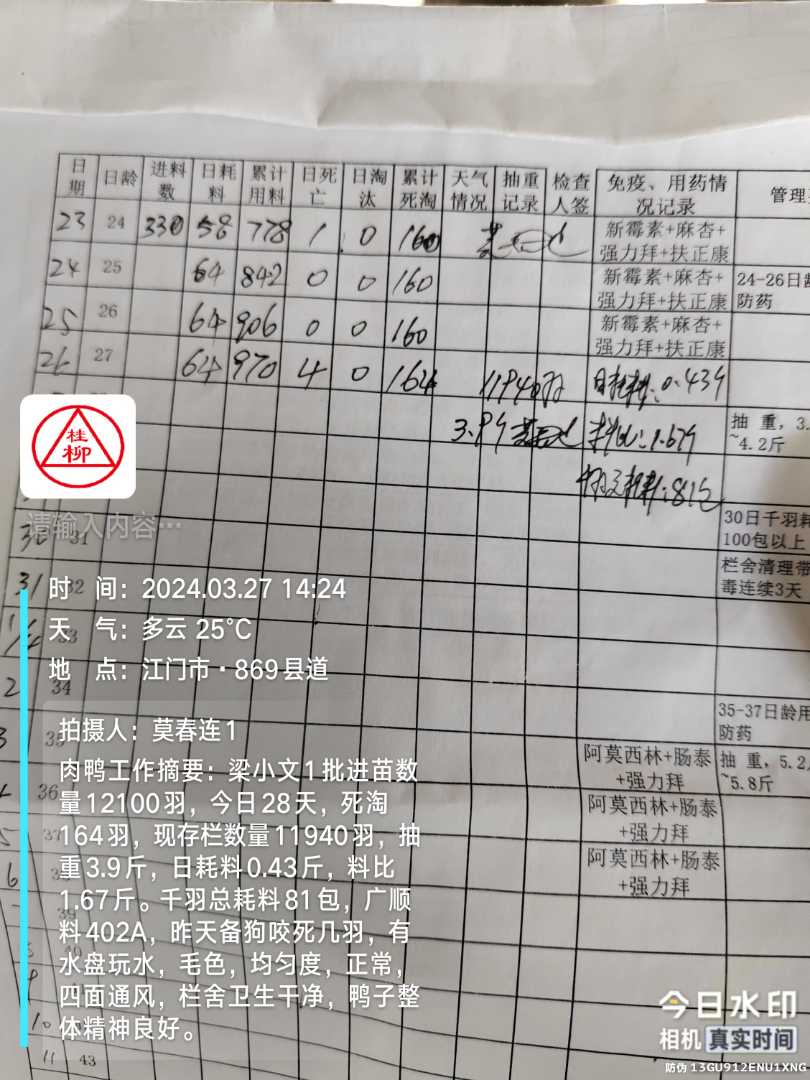 日期 日龄 进料数 日耗料 累计用料 日死亡 日淘汰 累计死淘 天气情况 抽重记录 检查人签 免疫、用药情况记录 管理
23 24 330 58 778 1 0 160 新霉素+麻杏+
强力拜+扶正康
24 25 64 842 0 0 160 新霉素+麻杏+ 24-26日龄
强力拜+扶正康 防药
25 26 64 906 0 0 160 新霉素+麻杏+
强力拜+扶正康
26 27 64 970 4 0 164 11940羽 日耗料:0.439
3.9斤 料比:1.679 抽重,3.
~4.2斤
耗料:81包
桂柳
请输入内容…
30 31 30日千羽耗
100包以上
31 32 栏舍清理带
毒连续3天
时 间:2024.03.27 14:24
天 气:多云 25℃
33
地 点:江门市·869县道
2 34
35-37日龄用
防药
拍摄人:莫春连1
3 35 阿莫西林+肠泰+强力拜 抽重,5.2
~5.8斤
肉鸭工作摘要:梁小文1批进苗数
量12100羽,今日28天,死淘
164羽,现存栏数量11940羽,抽
重3.9斤,日耗料0.43斤,料比
1.67斤。千羽总耗料81包,广顺
料402A,昨天备狗咬死几羽,有
水盘玩水,毛色,均匀度,正常,
四面通风,栏舍卫生干净,鸭子整
体精神良好。
36 阿莫西林+肠泰
+强力拜
阿莫西林+肠泰
+强力拜
10
11 43
今日水印
相机 真实时间
防伪 13GU912ENU1XNC